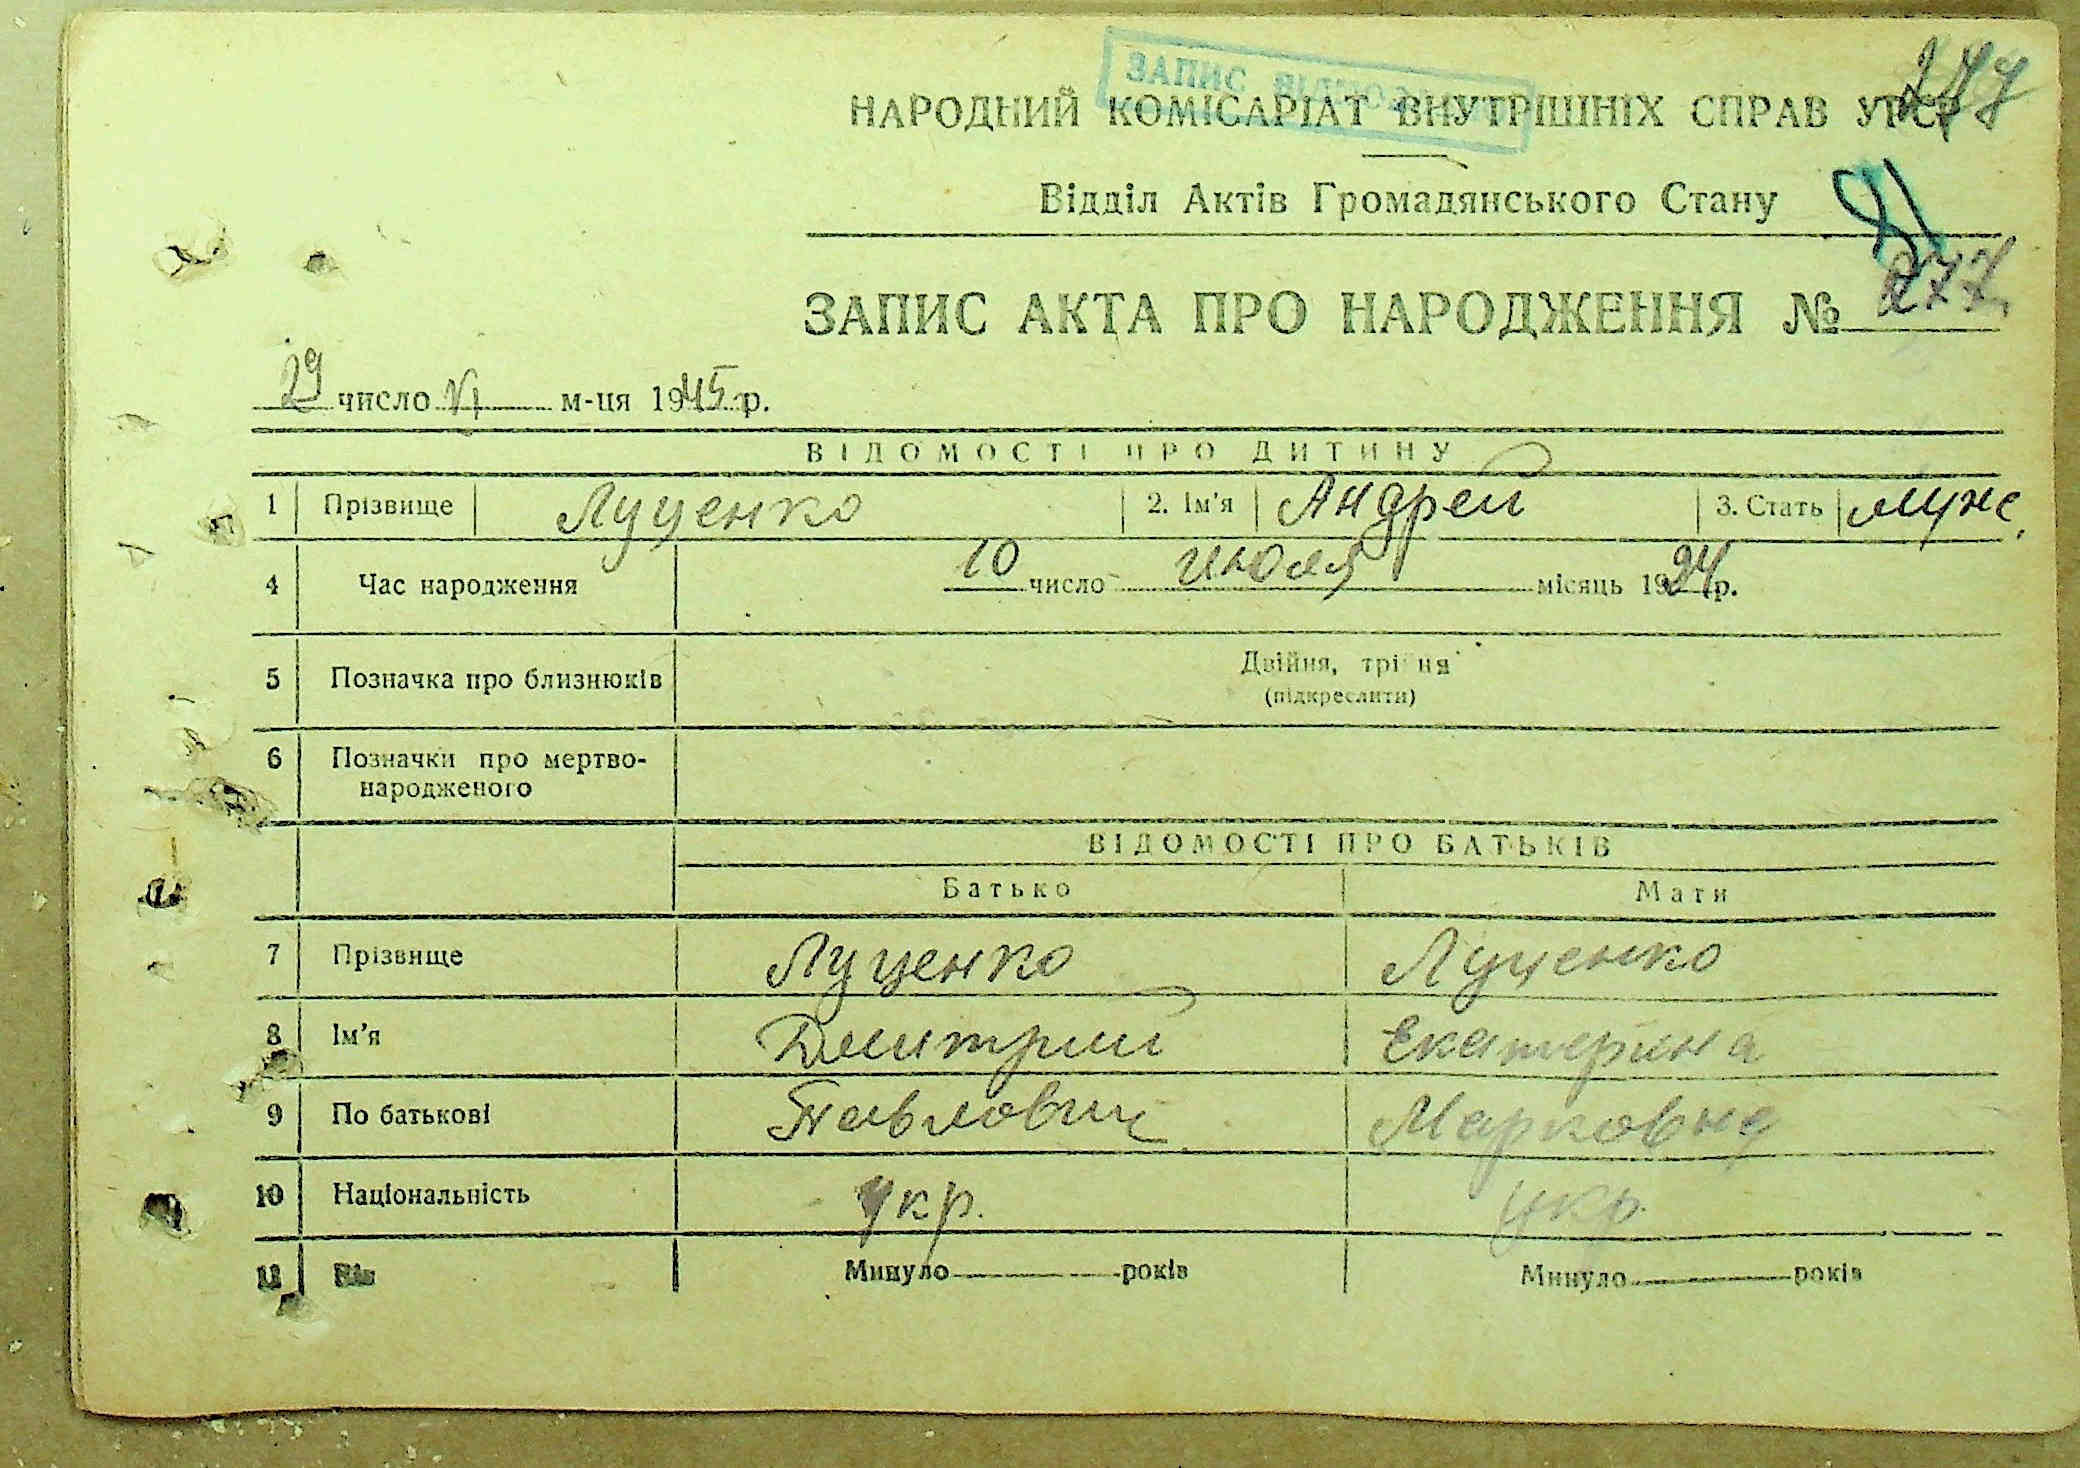 ЗАПИС ВІДНОВЛЕНО
277
НАРОДНИЙ КОМІСАРІАТ ВНУТРІШНІХ СПРАВ УРСР
Відділ Актів Громадянського Стану
81
ЗАПИС АКТА ПРО НАРОДЖЕННЯ № 277
29 число VI м-ця 1945 р.
ВІДОМОСТІ ПРО ДИТИНУ
1 Прізвище Луценко 2. Ім'я Андрей 3. Стать муж.
4 Час народження 10 число июля місяць 1924 р.
5 Позначка про близнюків Двійня, трійня
(підкреслити)
6 Позначки про мертво-
народженого
ВІДОМОСТІ ПРО БАТЬКІВ
Батько Мати
7 Прізвище Луценко Луценко
8 Ім'я Дмитрий Екатерина
9 По батькові Павлович Марковна
10 Національність укр. укр.
11 Вік Минуло років Минуло років